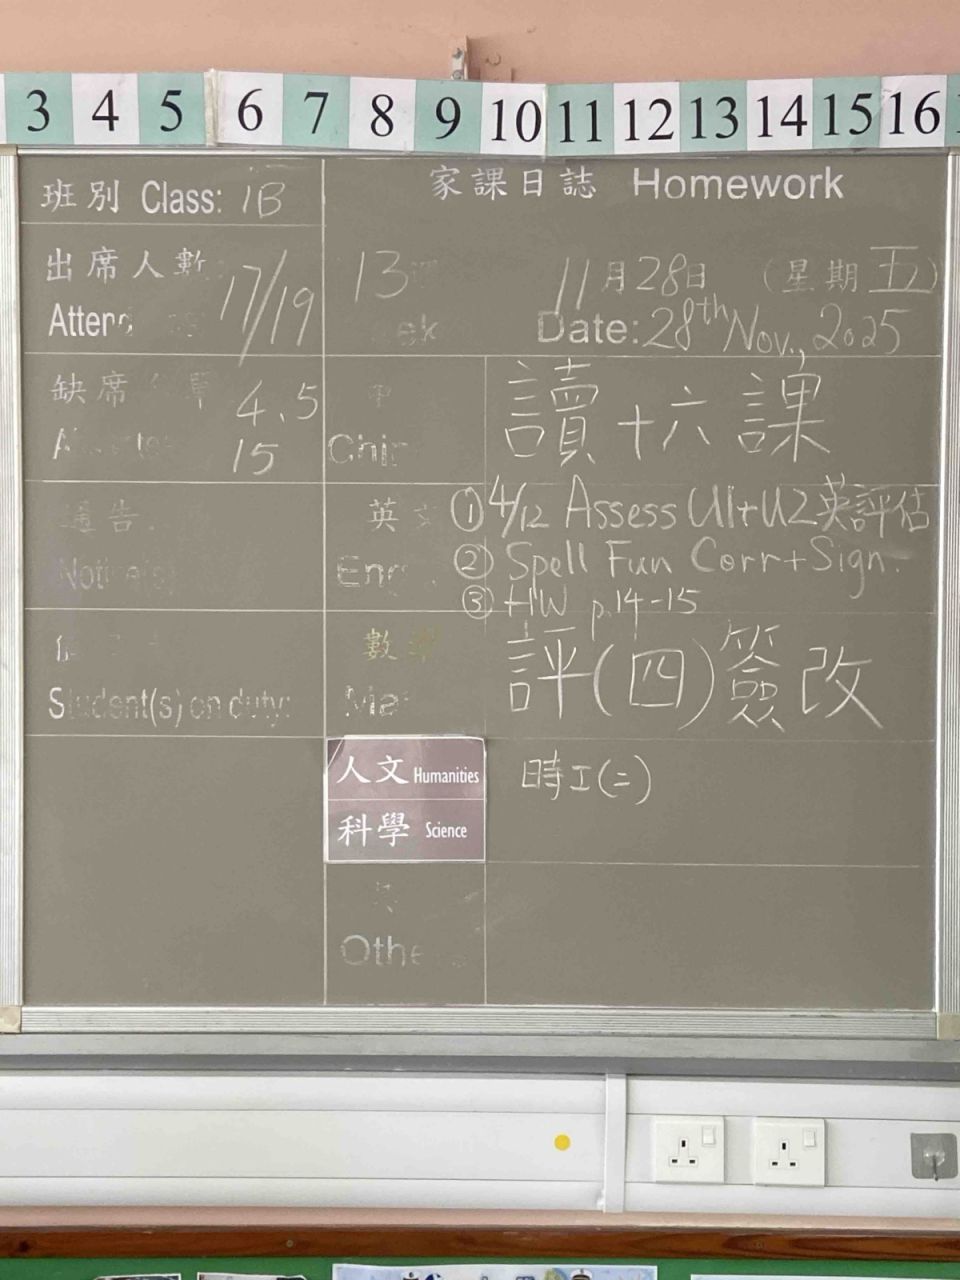 3 4 5 6 7 8 9 10 11 12 13 14 15 16
班別 Class: 1B
家課日誌 Homework
出席人數
17/19
13
11月28日 (星期五)
Date: 28th Nov., 2025
缺席
4.5
15
讀十六課
英
① 4/12 Assess U1+U2 英評估
② Spell Fun Corr+Sign.
③ HW p.14-15
Student(s) on duty:
數
評(四)簽改
人文 Humanities
科學 Science
時工(二)